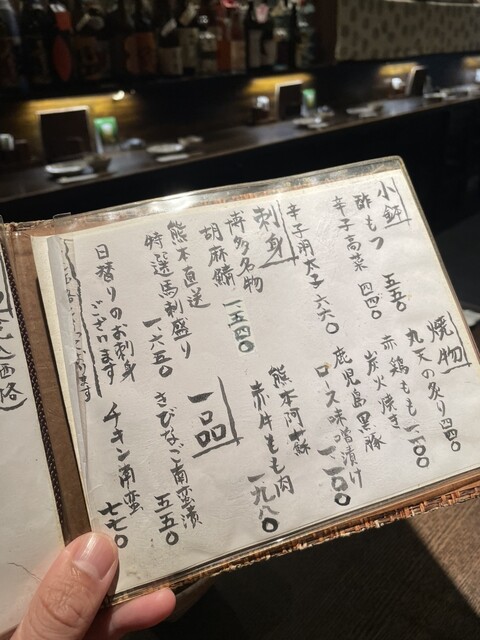 小鉢
酢もつ 五五〇
辛子高菜 四四〇
辛子明太子 六六〇
刺身
博多名物
胡麻鯖 一、五四〇
熊本直送
特選馬刺盛り
一、六五〇
日替りのお刺身
ございます
焼物
丸天の炙り 四四〇
赤鶏もも
炭火焼き 一、一〇〇
鹿児島黒豚
ロース味噌漬け
一、一〇〇
熊本阿蘇
赤牛もも肉
一、九八〇
一品
きびなご南蛮漬
五五〇
チキン南蛮
七七〇
価格)